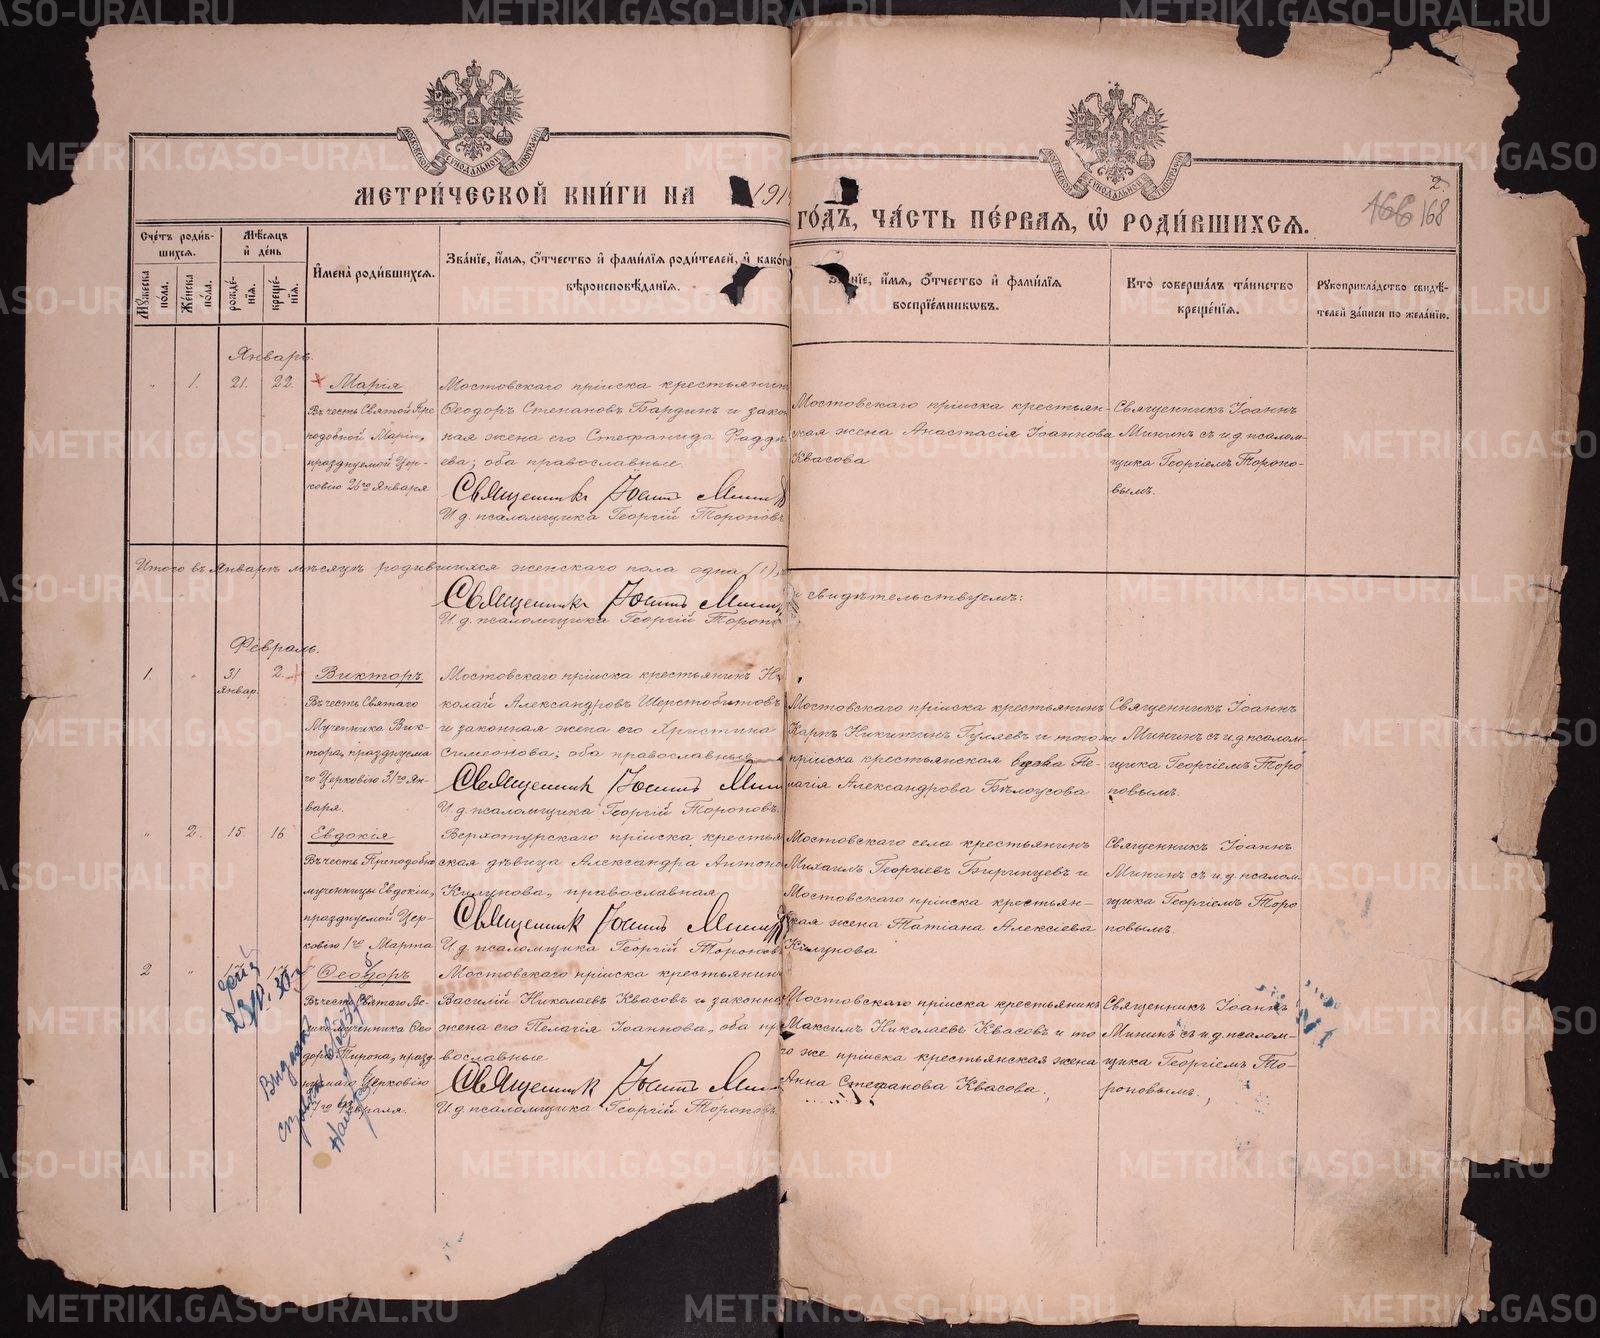 МЕТРИ́ЧЕСКОЙ КНИ́ГИ НА 191
ГО́ДЪ, ЧА́СТЬ ПЕ́РВАЯ, Ѽ РОДИ́ВШИХСЯ.
2.
166 168
Сче́тъ роди́в-
шихся.
Мѣ́сяцъ
и де́нь
Му́жеска по́ла.
Же́нска по́ла.
рожде́-
нїя.
креще́-
нїя.
Имена̀ роди́вшихся.
Зва́нїе, и́мя, о́тчество и фами́лїя роди́телей, и како́г
вѣроисповѣ́данїя.
нїе, и́мя, о́тчество и фами́лїя
воспрїе́мниковъ.
Кто̀ соверша́лъ та́инство
креще́нїя.
Рукоприкла́дство свидѣ́-
телей за́писи по жела́нїю.
Январь.
" 1. 21. 22. Марія
Въ честь Святой Пре
подобной Маріи,
празднуемой Цер-
ковію 26го Января
Мостовскаго пріиска крестьянин
Ѳеодоръ Степановъ Бардинъ и закон
ная жена его Стефанида Фадде
ева; оба православные
Священникъ Іоаннъ Минин
И. д. псаломщика Георгій Тороповъ
Мостовскаго пріиска крестьян-
ская жена Анастасія Іоаннова
Квасова
Священникъ Іоаннъ
Мининъ съ и.д. псалом-
щика Георгіемъ Торопо-
вымъ.
Итого въ Январѣ мѣсяцѣ родившихся женскаго пола одна (1),
и свидѣтельствуемъ:
Священникъ Іоаннъ Минин
И. д. псаломщика Георгій Торопо
Февраль.
1. " 31 Январ. 2. Викторъ
Въ честь Святаго
Мученника Вик-
тора, празднуема
го Церковію 31го Ян-
варя.
Мостовскаго пріиска крестьянинъ Ни
колай Александровъ Шерстобитовъ
и законная жена его Христина
Симеонова; оба православные
Священникъ Іоаннъ Мин
И. д. псаломщика Георгій Тороповъ.
Мостовскаго пріиска крестьянинъ
Карпъ Никитинъ Гуляевъ и того же
пріиска крестьянская вдова Пе-
лагія Александрова Бѣлоусова
Священникъ Іоаннъ
Мининъ съ и.д. псалом-
щика Георгіемъ Торо
повымъ.
" 2. 15. 16 Евдокія
Въ честь Преподобно
мученницы Евдокіи,
празднуемой Цер-
ковію 1го Марта
Верхотурскаго пріиска крестьян
ская дѣвица Александра Антоно
Килунова, православная
Священникъ Іоаннъ Минин
И. д. псаломщика Георгій Тороповъ
Мостовскаго села крестьянинъ
Михаилъ Георгіевъ Биринцевъ и
Мостовскаго пріиска крестьян-
ская жена Татіана Алексіева
Килунова
Священникъ Іоаннъ
Мининъ съ и.д. псалом-
щика Георгіемъ Торо
повымъ.
2 " 17 17 Ѳеодоръ
Въ честь Святаго Ве-
ликомученника Ѳео
дора Тирона, празд
нуемаго Церковію
17го Февраля.
Мостовскаго пріиска крестьянин
Василій Николаевъ Квасовъ и законна
жена его Пелагія Іоаннова, оба пра
вославные
Священникъ Іоаннъ Мин
И. д. псаломщика Георгій Тороповъ.
Мостовскаго пріиска крестьянинъ
Максимъ Николаевъ Квасовъ и то
го же пріиска крестьянская жена
Анна Стефанова Квасова.
Священникъ Іоаннъ
Мининъ съ и.д. псалом-
щика Георгіемъ То-
роповымъ.
METRIKI.GASO-URAL.RU